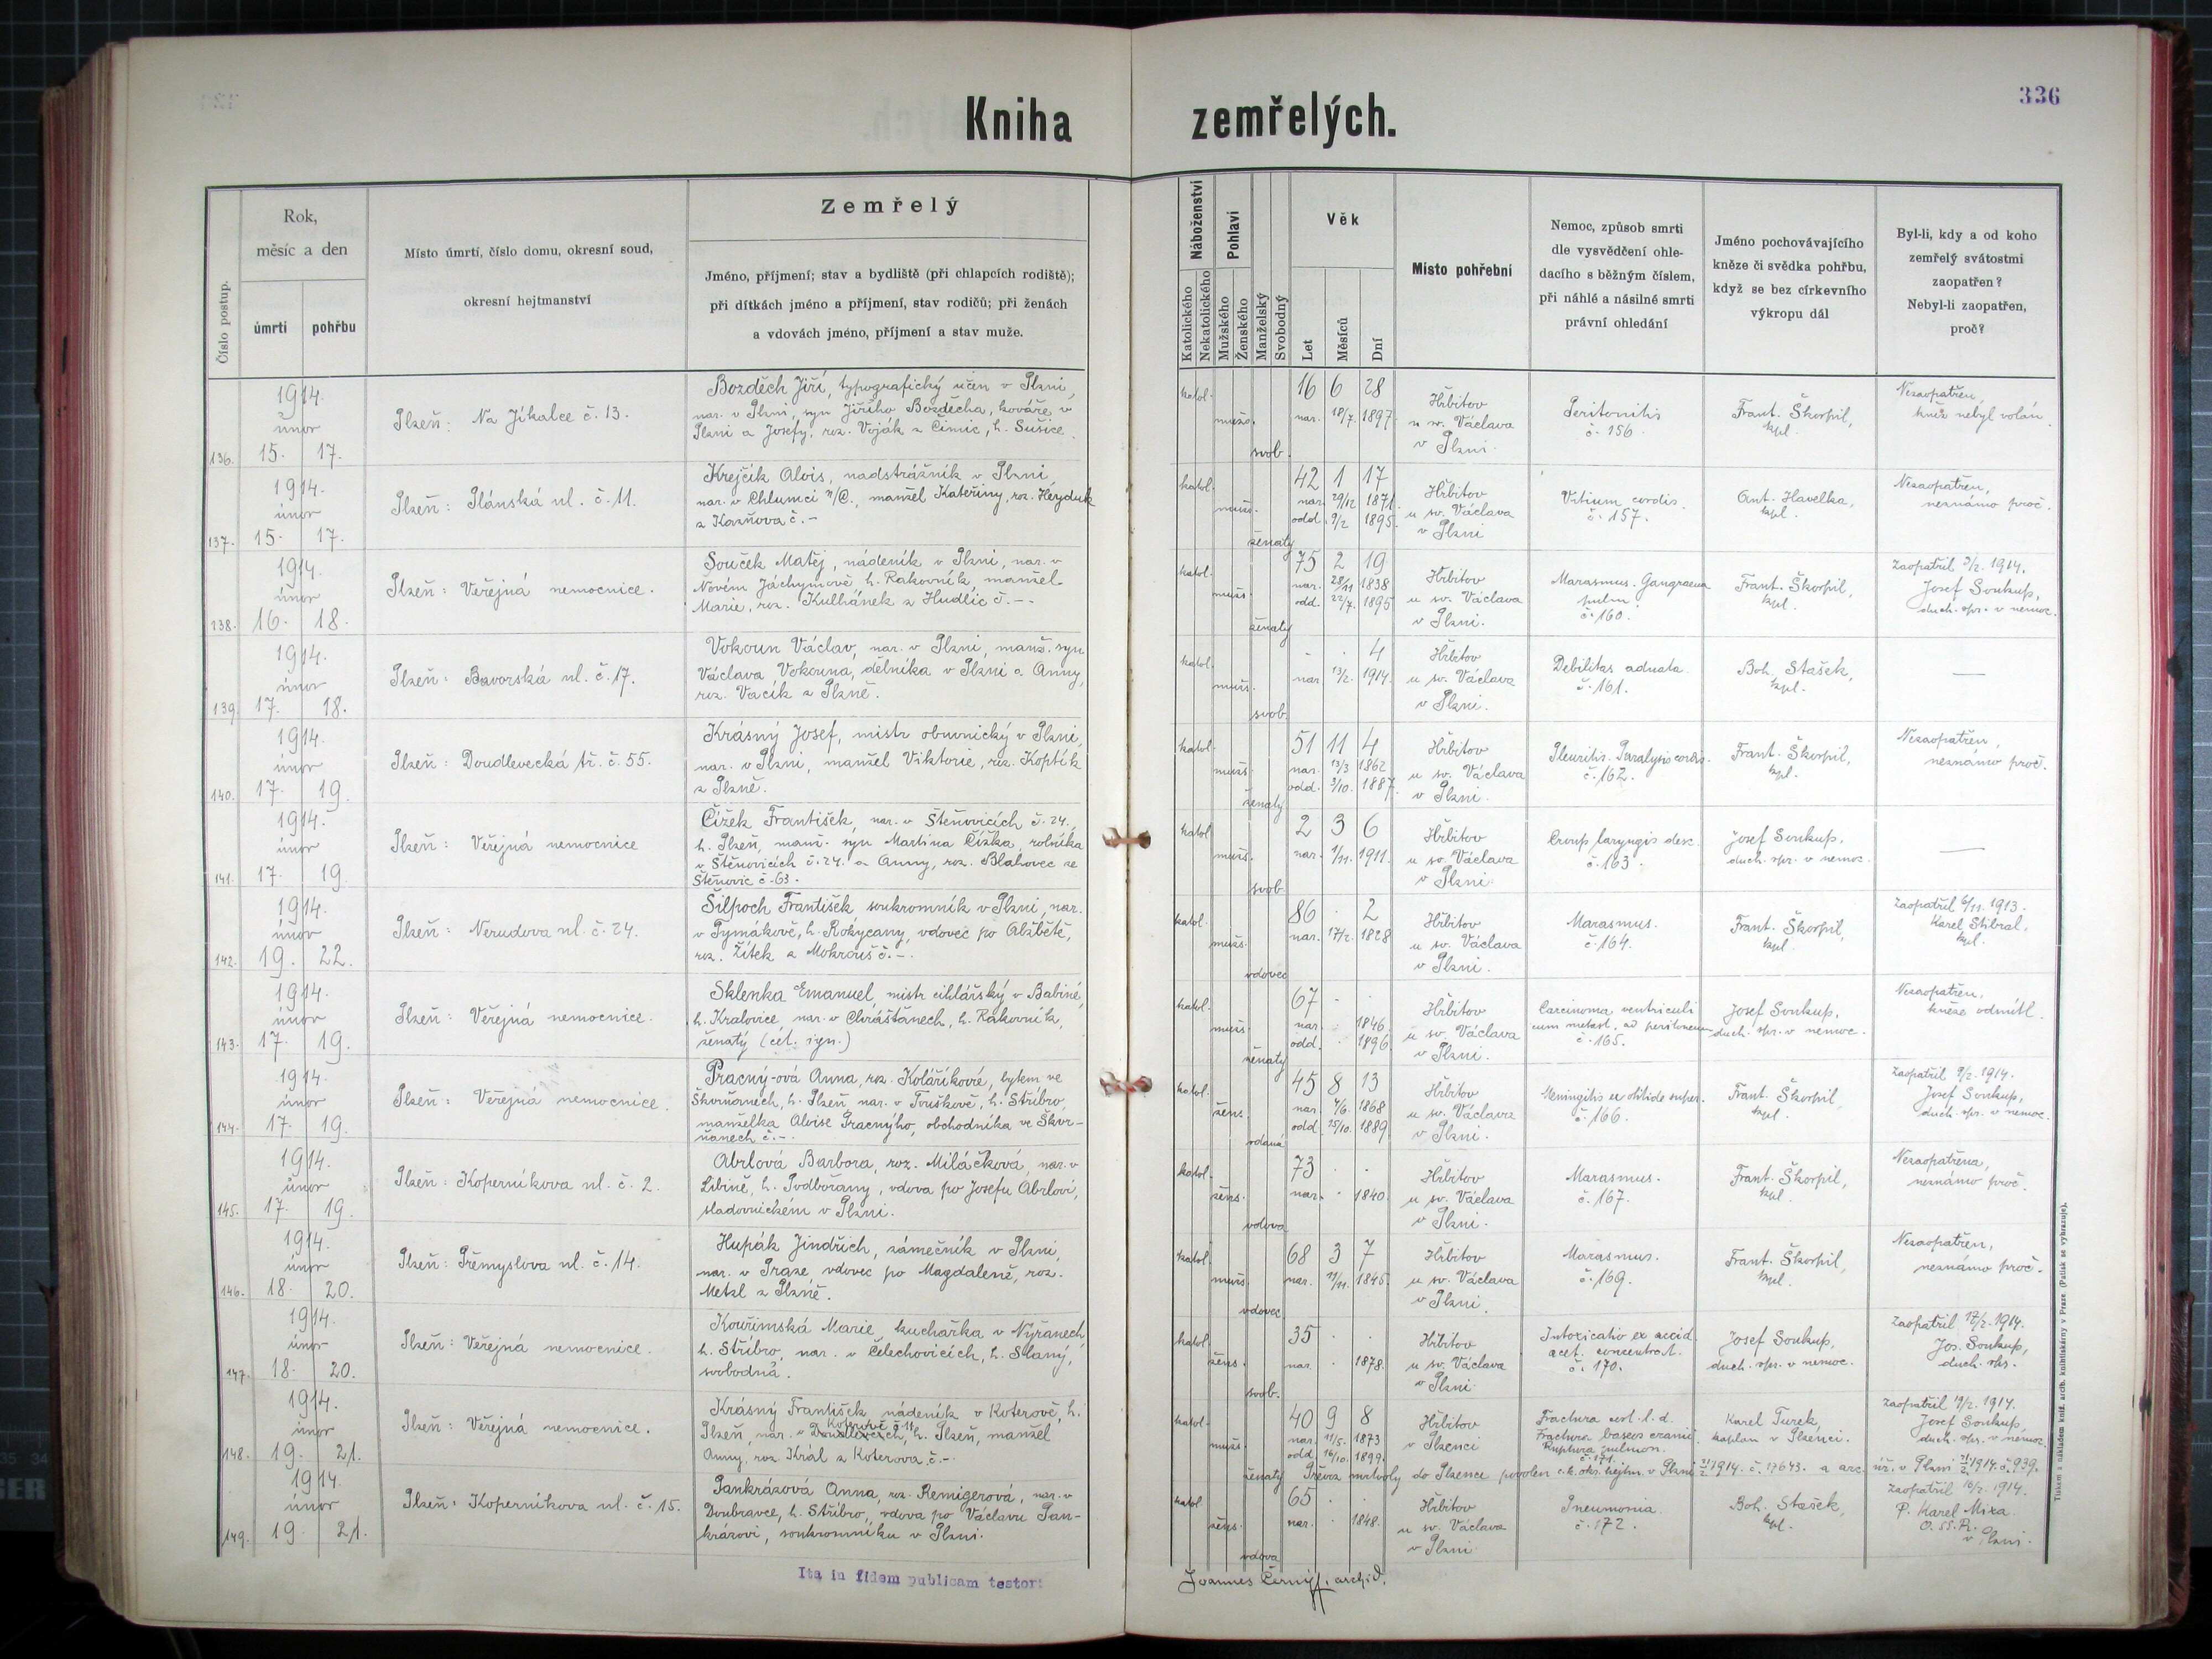 336
Kniha zemřelých.
Číslo postup.
Rok,
měsíc a den
úmrtí
pohřbu
Místo úmrtí, číslo domu, okresní soud,
okresní hejtmanství
Zemřelý
Jméno, příjmení; stav a bydliště (při chlapcích rodiště);
při dítkách jméno a příjmení, stav rodičů; při ženách
a vdovách jméno, příjmení a stav muže.
Náboženství
Katolického
Nekatolického
Pohlaví
Mužského
Ženského
Manželský
Svobodný
Věk
Let
Měsíců
Dní
Místo pohřební
Nemoc, způsob smrti
dle vysvědčení ohle-
dacího s běžným číslem,
při náhlé a násilné smrti
právní ohledání
Jméno pochovávajícího
kněze či svědka pohřbu,
když se bez církevního
výkropu dál
Byl-li, kdy a od koho
zemřelý svátostmi
zaopatřen?
Nebyl-li zaopatřen,
proč?
136.
1914.
únor
15. 17.
Plzeň: Na Jíkalce č. 13.
Bozděch Jiří, typografický učen v Plzni,
nar. v Plzni, syn Jiřího Bozděcha, kováře v
Plzni a Josefy, roz. Voják z Čimic, h. Sušice.
katol. mužs. svob.
16 6 28
nar. 18/7. 1897.
Hřbitov
u sv. Václava
v Plzni.
Peritonitis
č. 156.
Frant. Škorpil,
kpl.
Nezaopatřen,
kněz nebyl volán.
137.
1914.
únor
15. 17.
Plzeň: Plánská ul. č. 11.
Krejčík Alois, nadstrážník v Plzni,
nar. v Chlumci n/C., manžel Kateřiny, roz. Heyduk
z Kaznova č. -
katol. mužs. ženatý
42 1 17
nar. 29/12 1871.
odd. 9/2 1895.
Hřbitov
u sv. Václava
v Plzni
Vitium cordis.
č. 157.
Ant. Havelka,
kpl.
Nezaopatřen,
neznámo proč.
138.
1914.
únor
16. 18.
Plzeň: Veřejná nemocnice.
Souček Matěj, nádeník v Plzni, nar. v
Novém Jáchymově h. Rakovník, manžel
Marie, roz. Kulhánek z Hudlic č. -.
katol. mužs. ženatý
75 2 19
nar. 28/11 1838
odd. 22/7. 1895
Hřbitov
u sv. Václava
v Plzni.
Marasmus. Gangraena
pulm.
č. 160.
Frant. Škorpil,
kpl.
Zaopatřil 3/2. 1914.
Josef Soukup,
duch. spr. v nemoc.
139.
1914.
únor
17. 18.
Plzeň: Bavorská ul. č. 17.
Vokoun Václav, nar. v Plzni, manž. syn
Václava Vokouna, dělníka v Plzni a Anny,
roz. Vacík z Plzně.
katol. mužs. svob.
- . 4
nar. 13/2. 1914.
Hřbitov
u sv. Václava
v Plzni.
Debilitas adnata
č. 161.
Boh. Stašek,
kpl.
—
140.
1914.
únor
17. 19.
Plzeň: Doudlevecká tř. č. 55.
Krásný Josef, mistr obuvnický v Plzni,
nar. v Plzni, manžel Viktorie, roz. Koptík
z Plzně.
katol. mužs. ženatý
51 11 4
nar. 13/3 1862
odd. 3/10. 1887.
Hřbitov
u sv. Václava
v Plzni.
Pleuritis. Paralysis cordis.
č. 162.
Frant. Škorpil,
kpl.
Nezaopatřen,
neznámo proč.
141.
1914.
únor
17. 19.
Plzeň: Veřejná nemocnice
Čížek František, nar. v Štěnovicích č. 24.,
h. Plzeň, manž. syn Martina Čížka, rolníka
v Štěnovicích č. 24. a Anny, roz. Blahovec ze
Štěnovic č. 63.
katol. mužs. svob
2 3 6
nar. 1/11. 1911.
Hřbitov
u sv. Václava
v Plzni.
Croup laryngis desc.
č. 163.
Josef Soukup,
duch. spr. v nemoc.
—
142.
1914.
únor
19. 22.
Plzeň: Nerudova ul. č. 24.
Šilpoch František, soukromník v Plzni, nar.
v Tymákově, h. Rokycany, vdovec po Alžbětě,
roz. Žítek z Mokrouš č. -.
katol. mužs. vdovec
86 . 2
nar. 17/2. 1828
Hřbitov
u sv. Václava
v Plzni.
Marasmus.
č. 164.
Frant. Škorpil,
kpl.
Zaopatřil 6/11. 1913.
Karel Stibral,
kpl.
143.
1914.
únor
17. 19.
Plzeň: Veřejná nemocnice.
Sklenka Emanuel, mistr cihlářský v Babině,
h. Kralovice, nar. v Chrášťanech, h. Rakovník,
ženatý (cet. ign.)
katol. mužs. ženatý
67 . .
nar. . 1846.
odd. . 1896.
Hřbitov
u sv. Václava
v Plzni.
Carcinoma ventriculi
cum metast. ad peritoneum
č. 165.
Josef Soukup,
duch. spr. v nemoc.
Nezaopatřen,
kněze odmítl.
144.
1914.
únor
17. 19.
Plzeň: Veřejná nemocnice.
Pracný-ová Anna, roz. Koláříkova, bytem ve
Škvrňanech, h. Plzeň, nar. v Touškově, h. Stříbro,
manželka Aloise Pracnýho, obchodníka ve Škvr-
ňanech č. -.
katol. žens. vdaná
45 8 13
nar. 4/6. 1868
odd. 15/10. 1889.
Hřbitov
u sv. Václava
v Plzni.
Meningitis ex otitide super.
č. 166.
Frant. Škorpil,
kpl.
Zaopatřil 9/2. 1914.
Josef Soukup,
duch. spr. v nemoc.
145.
1914.
únor
17. 19.
Plzeň: Koperníkova ul. č. 2.
Abrlová Barbora, roz. Miláčková, nar. v
Libině, h. Podbořany, vdova po Josefu Abrlovi,
sladovnickém v Plzni.
katol. žens. vdova
73 . .
nar. . 1840.
Hřbitov
u sv. Václava
v Plzni.
Marasmus.
č. 167.
Frant. Škorpil,
kpl.
Nezaopatřena,
neznámo proč.
146.
1914.
únor
18. 20.
Plzeň: Přemyslova ul. č. 14.
Hupák Jindřich, zámečník v Plzni,
nar. v Praze, vdovec po Magdaleně, roz.
Metzl z Plzně.
katol. mužs. vdovec
68 3 7
nar. 11/11. 1845.
Hřbitov
u sv. Václava
v Plzni.
Marasmus.
č. 169.
Frant. Škorpil,
kpl.
Nezaopatřen,
neznámo proč.
147.
1914.
únor
18. 20.
Plzeň: Veřejná nemocnice.
Kouřimská Marie, kuchařka v Nýřanech,
h. Stříbro, nar. v Čelechovicích, h. Slaný,
svobodná.
katol. žens. svob.
35 . .
nar. . 1878.
Hřbitov
u sv. Václava
v Plzni
Intoxicatio ex accid.
acet. concentrat.
č. 170.
Josef Soukup,
duch. spr. v nemoc.
Zaopatřil 17/2. 1914.
Jos. Soukup,
duch. spr.
148.
1914.
únor
19. 21.
Plzeň: Veřejná nemocnice.
Krásný František, nádeník v Koterově, h.
Plzeň, nar. v Doudlevcích Koterově č. 11, h. Plzeň, manžel
Anny, roz. Král z Koterova č. -.
katol. mužs. ženatý
40 9 8
nar. 11/5. 1873
odd. 16/10. 1899.
Hřbitov
v Plzenci
Fractura cost. l. d.
Fractura baseos cranii.
Ruptura pulmon.
č. 171.
Karel Turek,
kaplan v Plzenci.
Zaopatřil 19/2. 1914.
Josef Soukup,
duch. spr. v nemoc.
Převoz mrtvoly do Plzence povolen c. k. okr. hejtm. v Plzni 21/2 1914. č. 17643. a arc. úř. v Plzni 21/2 1914. č. 939.
149.
1914.
únor
19. 21.
Plzeň: Koperníkova ul. č. 15.
Pankrázová Anna, roz. Remigerová, nar. v
Doubravce, h. Stříbro, vdova po Václavu Pan-
krázovi, soukromníku v Plzni.
katol. žens. vdova
65 . .
nar. . 1848.
Hřbitov
u sv. Václava
v Plzni
Pneumonia.
č. 172.
Boh. Stašek,
kpl.
Zaopatřil 10/2. 1914.
P. Karel Mixa
O. SS. R.
v Plzni.
Ita in fidem publicam testor:
Joannes Černý, archid.
Tiskem a nákladem kníž. arcib. knihtiskárny v Praze. (Patisk se vyhrazuje).